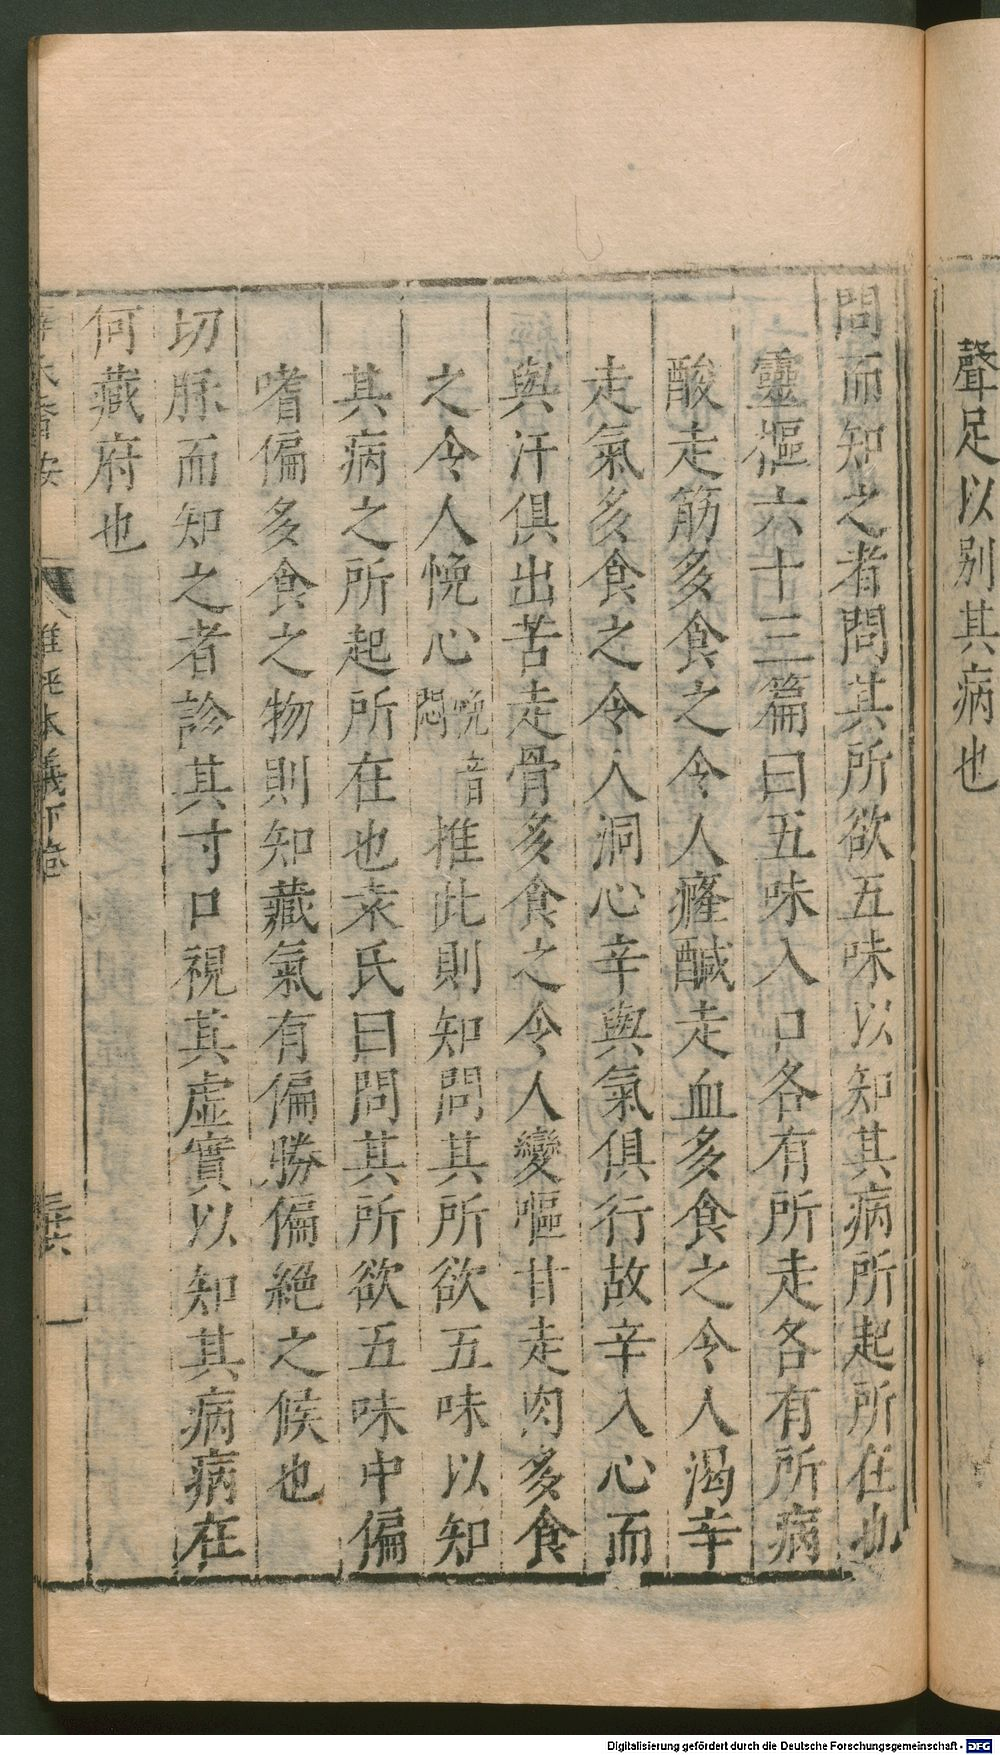 聲足以別其病也
問而知之者問其所欲五味以知其病所起所在也
靈樞六十三篇曰五味入口各有所走各有所病
酸走筋多食之令人癃鹹走血多食之令人渴辛
走氣多食之令人洞心辛與氣俱行故辛入心而
與汗俱出苦走骨多食之令人變嘔甘走肉多食
之令人悗心悗音悶推此則知問其所欲五味以知
其病之所起所在也袁氏曰問其所欲五味中偏
嗜偏多食之物則知藏氣有偏勝偏絕之候也
切脉而知之者診其寸口視其虛實以知其病病在
何藏府也
難經本義下卷
三十六
Digitalisierung gefördert durch die Deutsche Forschungsgemeinschaft - DFG